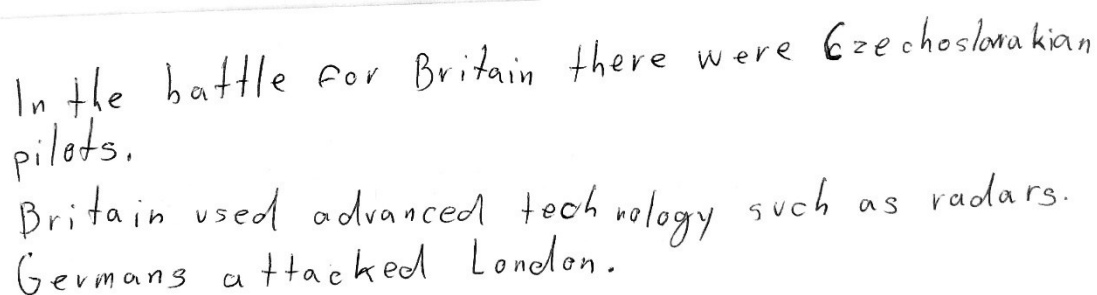 In the battle for Britain there were Czechoslovakian
pilots.
Britain used advanced technology such as radars.
Germans attacked London.